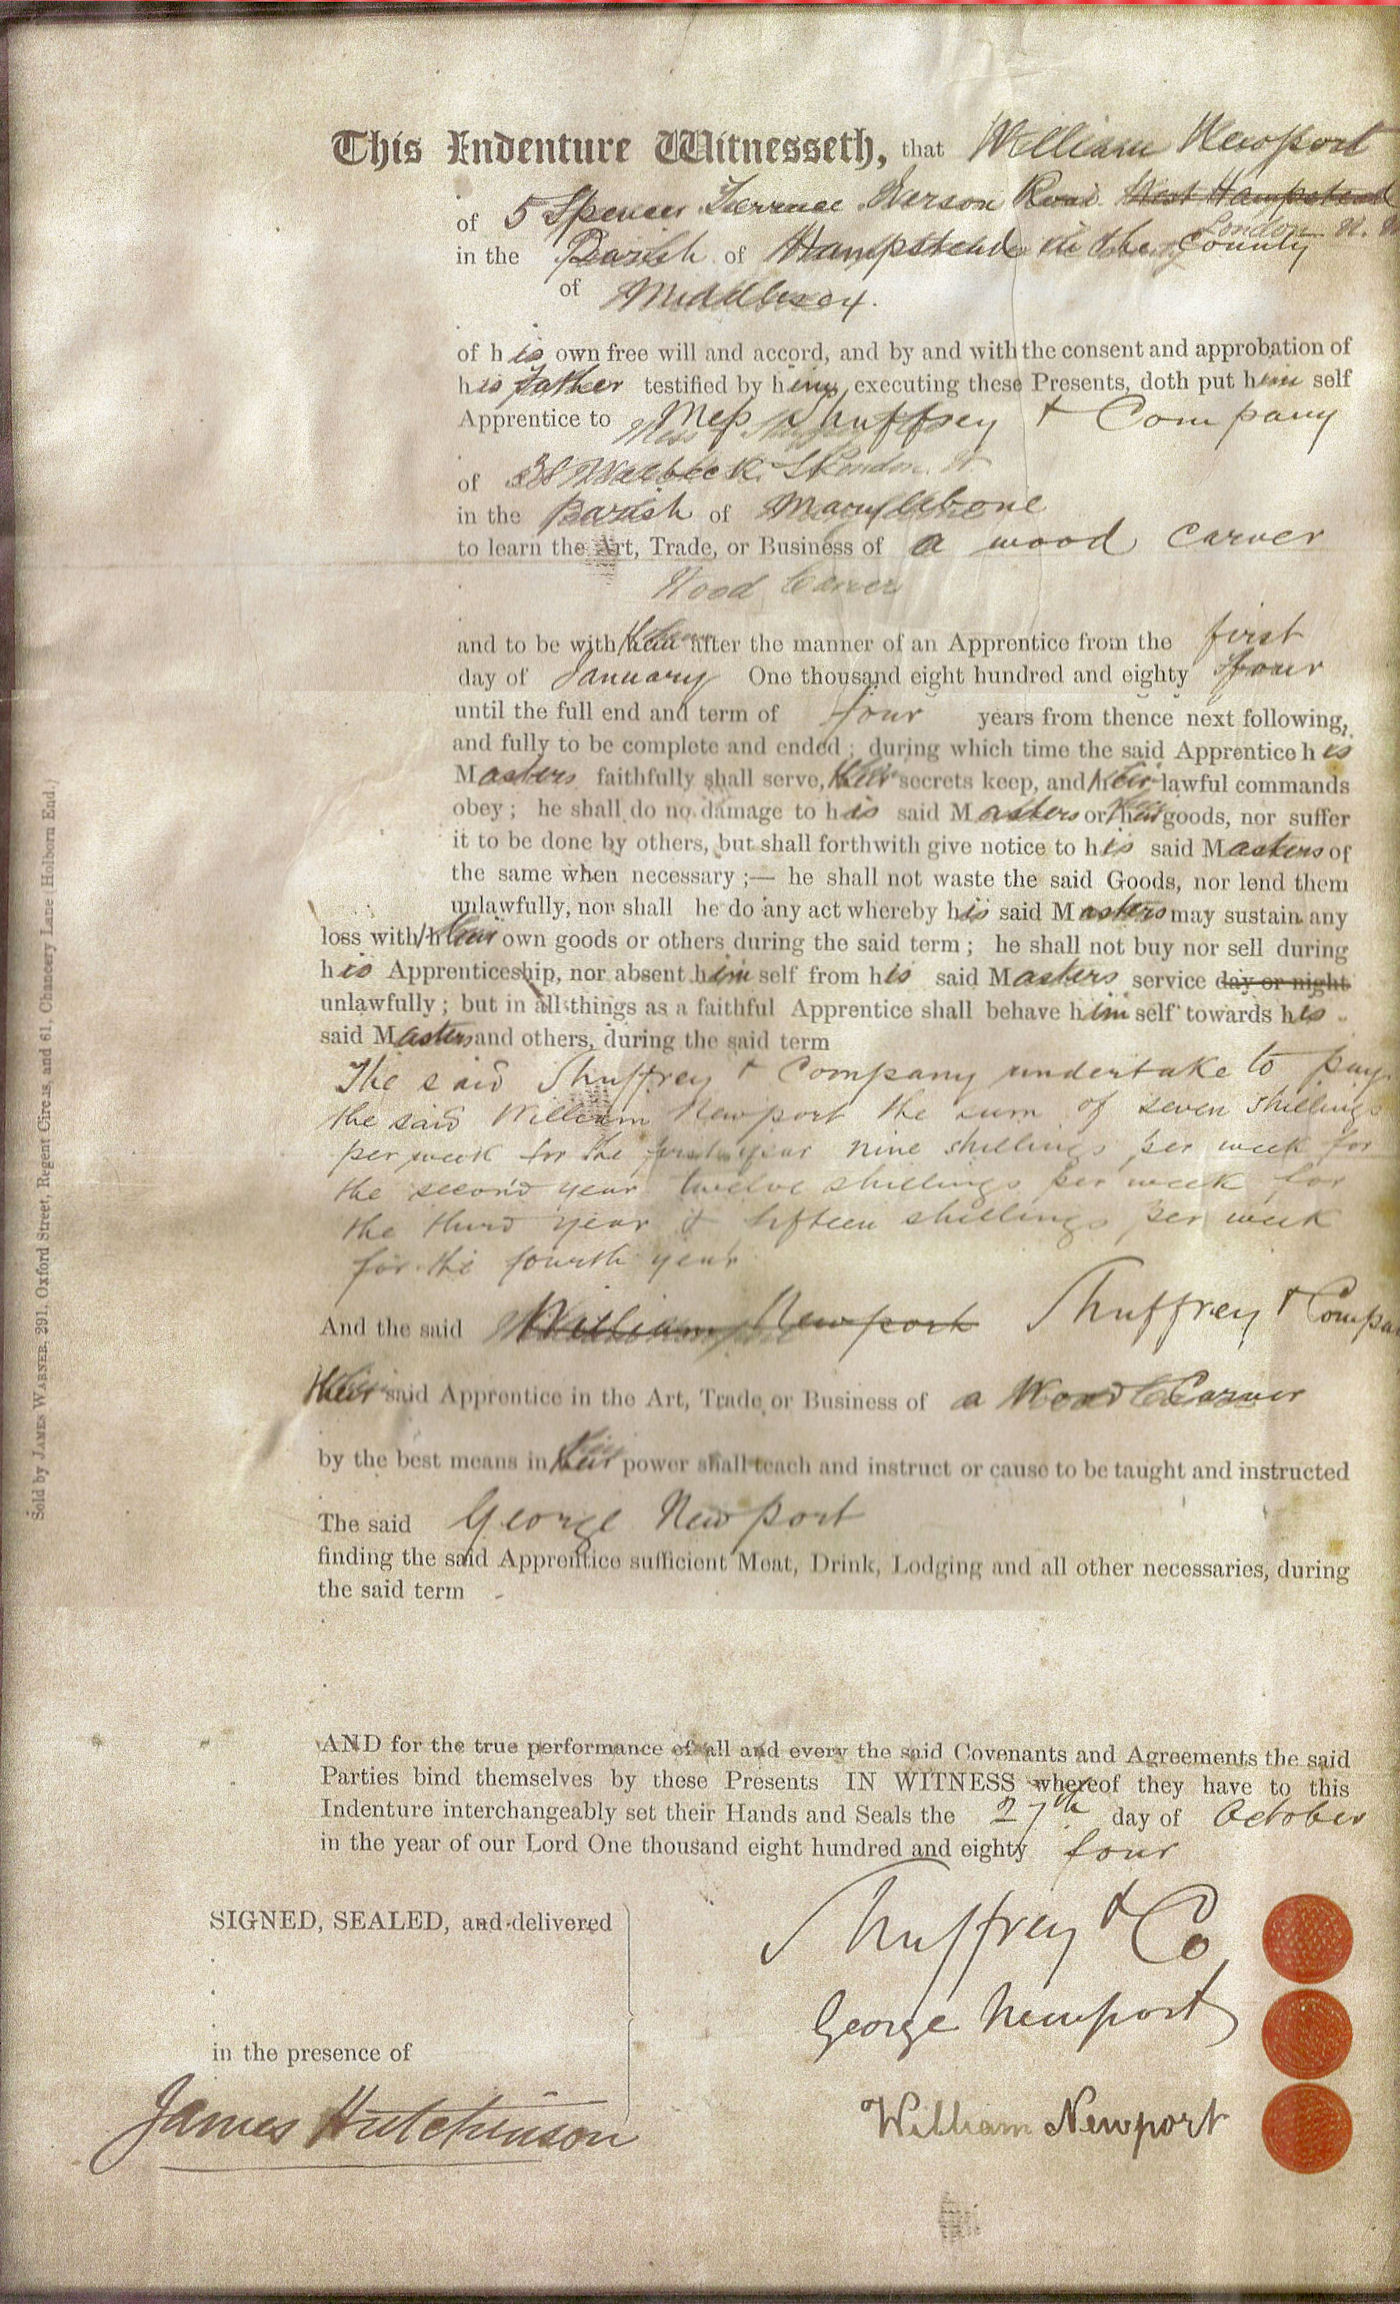 This Indenture Witnesseth, that William Newport
of 5 Spencer Terrace Road West Hampstead
London
in the Parish of Hampstead in the County
of Middlesex.
of his own free will and accord, and by and with the consent and approbation of
his father testified by him executing these Presents, doth put him self
Apprentice to Mess Shuffrey & Company
of 38 Welbeck St London W
in the Parish of Marylebone
to learn the Art, Trade, or Business of a wood carver
Wood Carver
and to be with them after the manner of an Apprentice from the first
day of January One thousand eight hundred and eighty four
until the full end and term of four years from thence next following,
and fully to be complete and ended; during which time the said Apprentice his
Masters faithfully shall serve, their secrets keep, and their lawful commands
obey; he shall do no damage to his said Masters or their goods, nor suffer
it to be done by others, but shall forthwith give notice to his said Masters of
the same when necessary;— he shall not waste the said Goods, nor lend them
unlawfully, nor shall he do any act whereby his said Masters may sustain any
loss with their own goods or others during the said term; he shall not buy nor sell during
his Apprenticeship, nor absent him self from his said Masters service day or night
unlawfully; but in all things as a faithful Apprentice shall behave him self towards his
said Masters and others, during the said term
The said Shuffrey & Company undertake to pay
the said William Newport the sum of seven shillings
per week for the first year nine shillings per week for
the second year twelve shillings per week for
the third year & fifteen shillings per week
for the fourth year
And the said William Newport Shuffrey & Compa
their said Apprentice in the Art, Trade or Business of a Wood Carver
by the best means in their power shall teach and instruct or cause to be taught and instructed
The said George Newport
finding the said Apprentice sufficient Meat, Drink, Lodging and all other necessaries, during
the said term
AND for the true performance of all and every the said Covenants and Agreements the said
Parties bind themselves by these Presents IN WITNESS whereof they have to this
Indenture interchangeably set their Hands and Seals the 27th day of October
in the year of our Lord One thousand eight hundred and eighty four
SIGNED, SEALED, and delivered
in the presence of
James Hutchinson
Shuffrey & Co
George Newport
William Newport
Sold by JAMES WARNER, 291, Oxford Street, Regent Circus, and 61, Chancery Lane (Holborn End.)